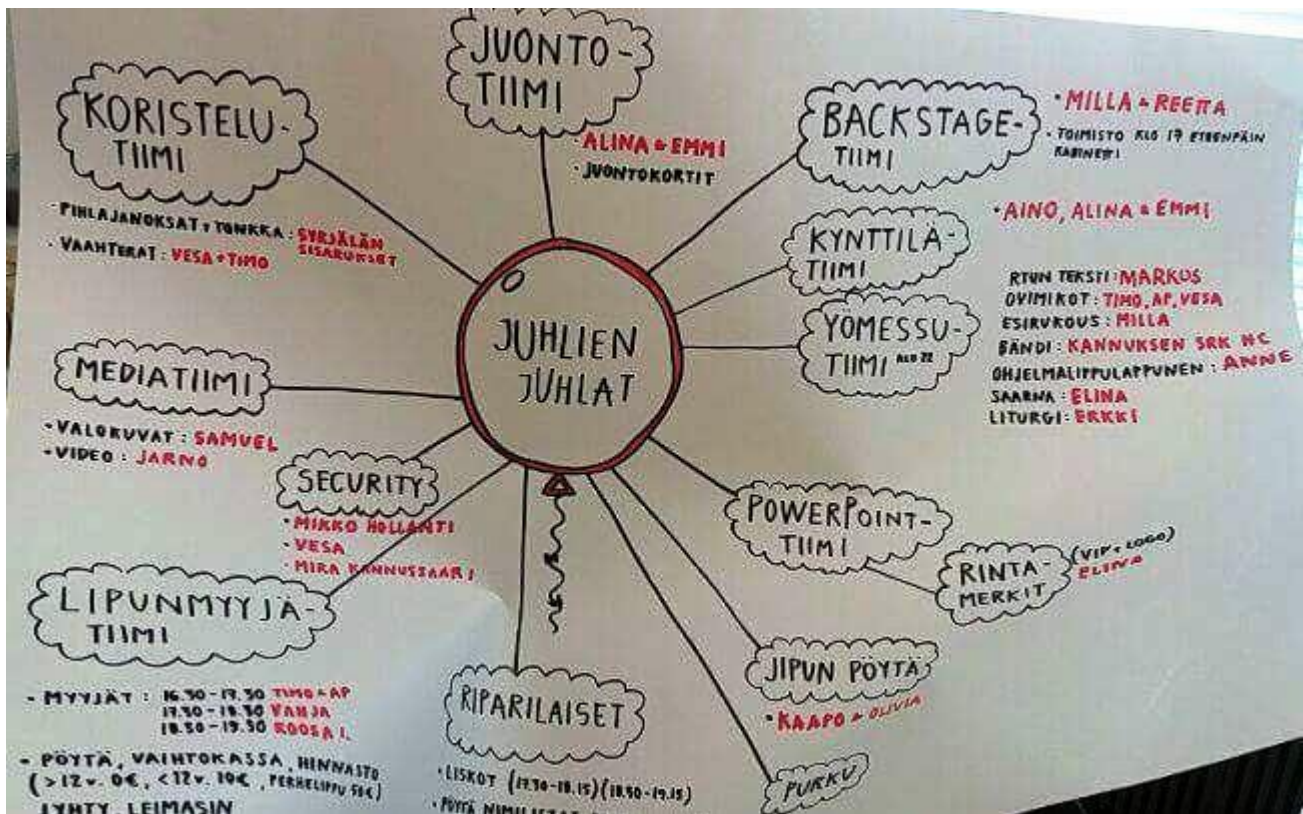 JUONTO-
TIIMI
· ALINA & EMMI
· JUONTOKORTIT
KORISTELU-
TIIMI
· PIHLAJANOKSAT + TONKKA : SYRJÄLÄN
SISARUKSET
· VAAHTERAT : VESA + TIMO
BACKSTAGE-
TIIMI
· MILLA & REETTA
· TOIMISTO KLO 17 ETEENPÄIN
KABINETTI
KYNTTILÄ-
TIIMI
· AINO, ALINA & EMMI
YÖMESSU-
TIIMI KLO 22
RTUN TEKSTI : MARKUS
OVIMIKOT : TIMO, AP, VESA
ESIRUKOUS : MILLA
BÄNDI : KANNUKSEN SRK NC
OHJELMALIPPULAPPUNEN : ANNE
SAARNA : ELINA
LITURGI : ERKKI
JUHLIEN
JUHLAT
MEDIATIIMI
· VALOKUVAT : SAMUEL
· VIDEO : JARNO
SECURITY
· MIKKO HOLLANTI
· VESA
· MIRA KANNUSSAARI
POWERPOINT-
TIIMI
RINTA-
MERKIT
(VIP + LOGO)
ELINA
LIPUNMYYJÄ-
TIIMI
- MYYJÄT : 16.30-17.30 TIMO & AP
17.30-18.30 VANJA
18.30-19.30 ROOSA L.
- PÖYTÄ, VAIHTOKASSA, HINNASTO
(>12 v. 0€, <12 v. 10€, PERHELIPPU 50€)
LYHTY, LEIMASIN
RIPARILAISET
· LISKOT (17.30-18.15)(18.30-19.15)
· PÖYTÄ
JIPUN PÖYTÄ
· KAAPO & OLIVIA
PURKU